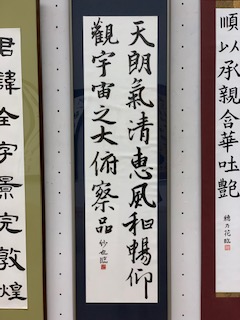 順以承親含華吐艷
穂乃花臨
天朗氣清恵風和暢仰
觀宇宙之大俯察品
臨
君諱全字景完敦煌